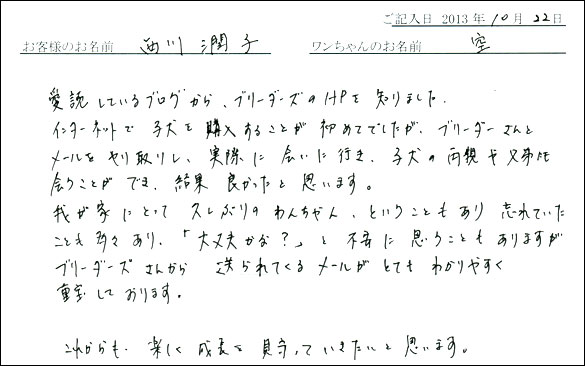 ご記入日 2013年10月22日
お客様のお名前 西川 潤子 ワンちゃんのお名前 空
愛読しているブログから、ブリーダーズのHPを知りました.
インターネットで子犬を購入することが初めてでしたが、ブリーダーさんと
メールをやり取りし、実際に会いに行き、子犬の両親や兄弟にも
会うことができ、結果良かったと思います。
我が家にとって久しぶりのわんちゃん、ということもあり忘れていた
ことも多々あり、「大丈夫かな?」と不安に思うこともありますが
ブリーダーズさんから送られてくるメールがとてもわかりやすく
重宝しております。
これからも、楽しく成長を見守っていきたいと思います。